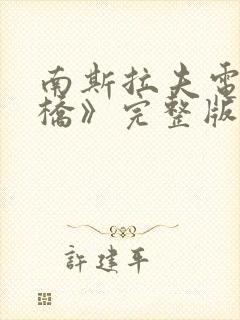 南斯拉夫電
橋》完整版
許建平